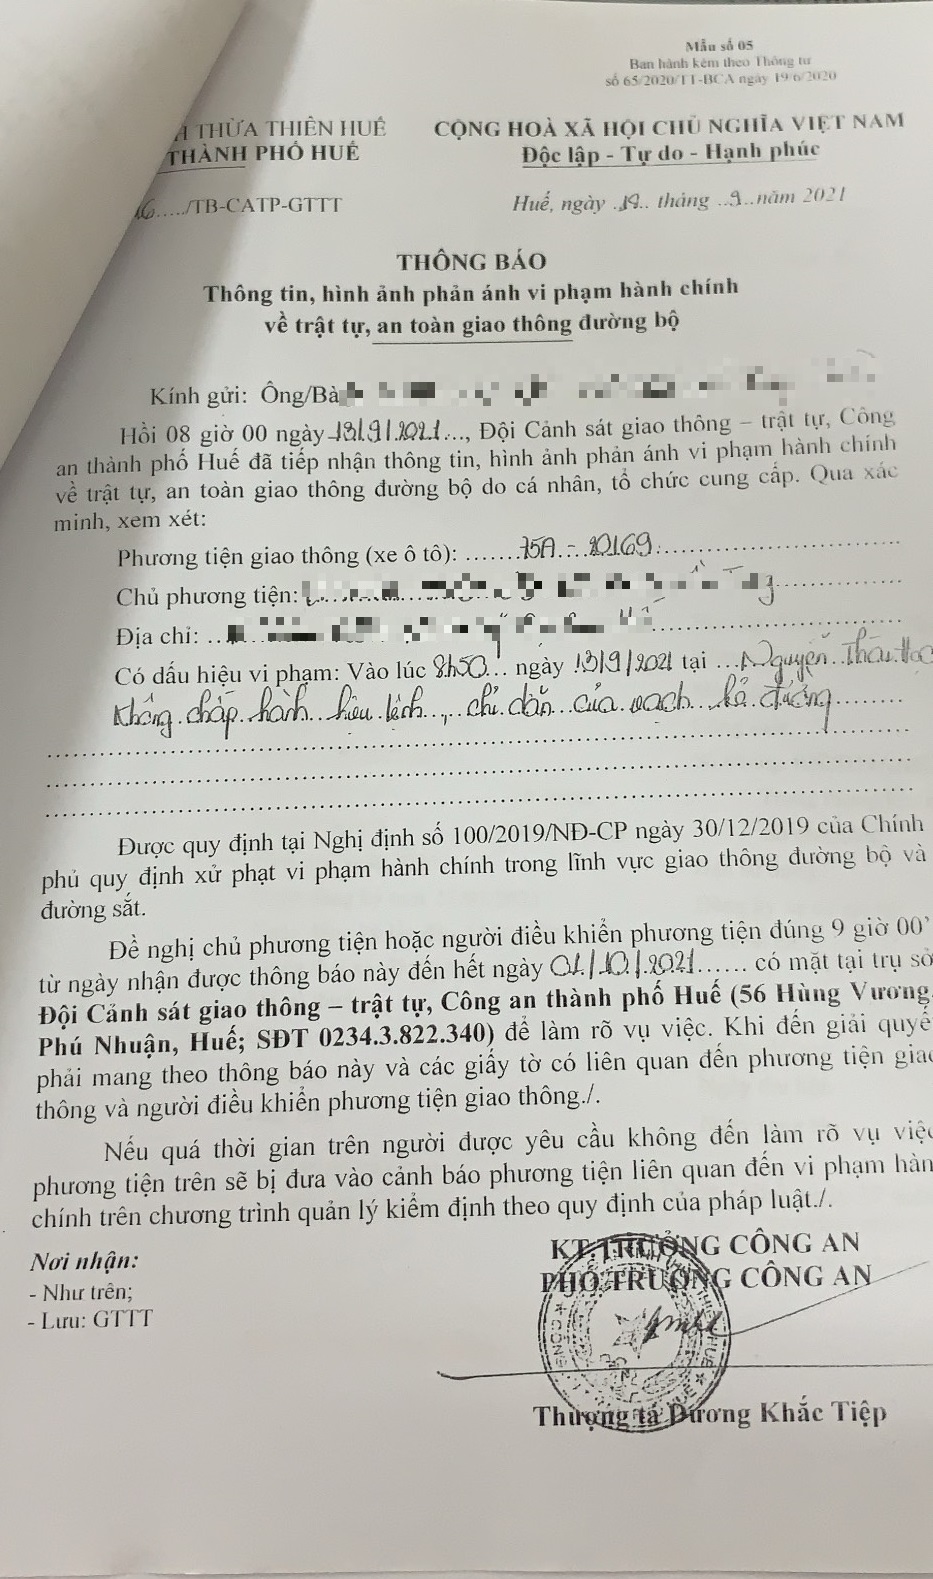 Mẫu số 05
Ban hành kèm theo Thông tư
số 65/2020/TT-BCA ngày 19/6/2020
THỪA THIÊN HUẾ
THÀNH PHỐ HUẾ
CỘNG HOÀ XÃ HỘI CHỦ NGHĨA VIỆT NAM
Độc lập - Tự do - Hạnh phúc
6...../TB-CATP-GTTT
Huế, ngày .19.. tháng ..9..năm 2021
THÔNG BÁO
Thông tin, hình ảnh phản ánh vi phạm hành chính
về trật tự, an toàn giao thông đường bộ
Kính gửi: Ông/Bà
Hồi 08 giờ 00 ngày 13/9/2021..., Đội Cảnh sát giao thông – trật tự, Công
an thành phố Huế đã tiếp nhận thông tin, hình ảnh phản ánh vi phạm hành chính
về trật tự, an toàn giao thông đường bộ do cá nhân, tổ chức cung cấp. Qua xác
minh, xem xét:
Phương tiện giao thông (xe ô tô): ......75A - 10169
Chủ phương tiện:
Địa chỉ:
Có dấu hiệu vi phạm: Vào lúc 8h50... ngày 13/9/2021 tại ...Nguyễn Thái Học
Không chấp hành hiệu lệnh, chỉ dẫn của vạch kẻ đường
Được quy định tại Nghị định số 100/2019/NĐ-CP ngày 30/12/2019 của Chính
phủ quy định xử phạt vi phạm hành chính trong lĩnh vực giao thông đường bộ và
đường sắt.
Đề nghị chủ phương tiện hoặc người điều khiển phương tiện đúng 9 giờ 00’
từ ngày nhận được thông báo này đến hết ngày 01/10/2021...... có mặt tại trụ sở
Đội Cảnh sát giao thông – trật tự, Công an thành phố Huế (56 Hùng Vương,
Phú Nhuận, Huế; SĐT 0234.3.822.340) để làm rõ vụ việc. Khi đến giải quyế
phải mang theo thông báo này và các giấy tờ có liên quan đến phương tiện giao
thông và người điều khiển phương tiện giao thông./.
Nếu quá thời gian trên người được yêu cầu không đến làm rõ vụ việc
phương tiện trên sẽ bị đưa vào cảnh báo phương tiện liên quan đến vi phạm hàn
chính trên chương trình quản lý kiểm định theo quy định của pháp luật./.
Nơi nhận:
- Như trên;
- Lưu: GTTT
KT.TRƯỞNG CÔNG AN
PHÓ TRƯỞNG CÔNG AN
Thượng tá Dương Khắc Tiệp